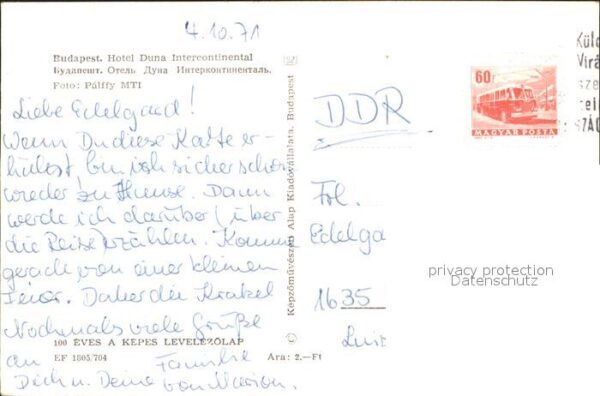 4.10.71
Budapest. Hotel Duna Intercontinental
Будапешт. Отель Дуна Интерконтиненталь.
Foto: Pálffy MTI
Liebe Edelgard!
Wenn Du diese Karte er-
hälst, bin ich sicher schon
wieder zu Hause. Dann
werde ich darüber (über
die Reise) erzählen. Komme
gerade von einer kleinen
Feier. Daher die Krakel
Nochmals viele Grüße
100 ÉVES A KÉPES LEVELEZŐLAP
an Familie
EF 1805/704
Ara: 2.—Ft
Dich u. Deine von Marion.
Képzőművészeti Alap Kiadóvállalata, Budapest
60f
MAGYAR POSTA
Külö
Virá
sze
tel
SZÁC
DDR
Frl.
Edelga
1635
privacy protection
Datenschutz